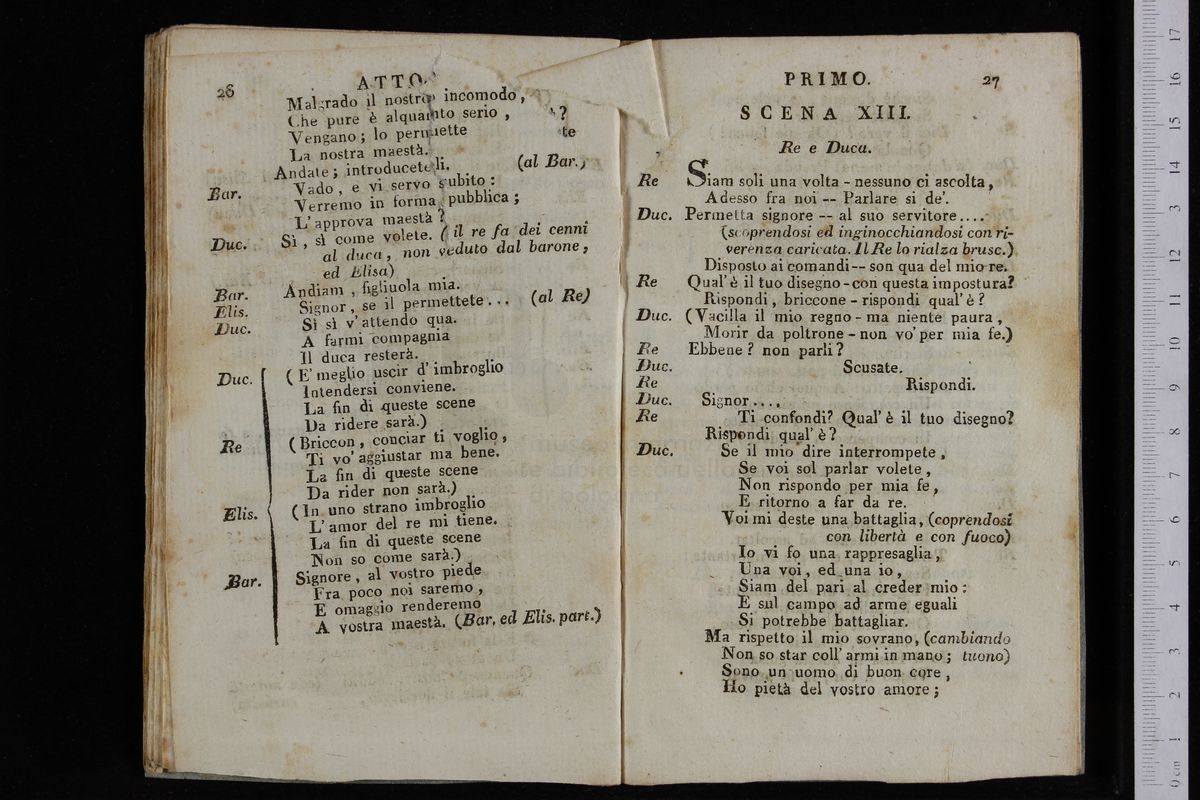 26
ATTO
Malgrado il nostro incomodo,
Che pure è alquanto serio,
?
Vengano; lo permette
te
La nostra maestà.
Andate; introduceteli. (al Bar.)
Bar. Vado, e vi servo subito:
Verremo in forma pubblica;
L'approva maestà?
Duc. Sì, sì come volete. (il re fa dei cenni
al duca, non veduto dal barone,
ed Elisa)
Bar. Andiam, figliuola mia.
Elis. Signor, se il permettete... (al Re)
Duc. Sì sì v'attendo qua.
A farmi compagnia
Il duca resterà.
Duc. (E' meglio uscir d'imbroglio
Intendersi conviene.
La fin di queste scene
Da ridere sarà.)
Re (Briccon, conciar ti voglio,
Ti vo' aggiustar ma bene.
La fin di queste scene
Da rider non sarà.)
Elis. (In uno strano imbroglio
L'amor del re mi tiene.
La fin di queste scene
Non so come sarà.)
Bar. Signore, al vostro piede
Fra poco noi saremo,
E omaggio renderemo
A vostra maestà. (Bar. ed Elis. part.)
PRIMO. 27
SCENA XIII.
Re e Duca.
Re Siam soli una volta - nessuno ci ascolta,
Adesso fra noi -- Parlare si de'.
Duc. Permetta signore -- al suo servitore....
(scoprendosi ed inginocchiandosi con ri-
verenza caricata. Il Re lo rialza brusc.)
Disposto ai comandi -- son qua del mio re.
Re Qual'è il tuo disegno - con questa impostura?
Rispondi, briccone - rispondi qual'è?
Duc. (Vacilla il mio regno - ma niente paura,
Morir da poltrone - non vo' per mia fe.)
Re Ebbene? non parli?
Duc. Scusate.
Re Rispondi.
Duc. Signor....
Re Ti confondi? Qual'è il tuo disegno?
Rispondi qual'è?
Duc. Se il mio dire interrompete,
Se voi sol parlar volete,
Non rispondo per mia fe,
E ritorno a far da re.
Voi mi deste una battaglia, (coprendosi
con libertà e con fuoco)
Io vi fo una rappresaglia,
Una voi, ed una io,
Siam del pari al creder mio:
E sul campo ad arme eguali
Si potrebbe battagliar.
Ma rispetto il mio sovrano, (cambiando
Non so star coll'armi in mano; tuono)
Sono un uomo di buon core,
Ho pietà del vostro amore;
0 cm 1 2 3 4 5 6 7 8 9 10 11 12 13 14 15 16 17